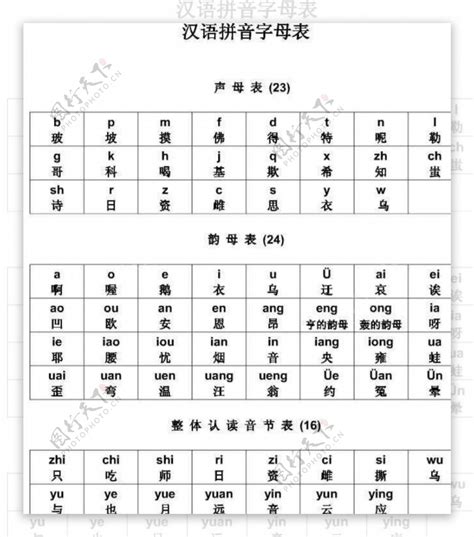 汉语拼音字母表
汉语拼音字母表
声 母 表 (23)
b p m f d t n l
玻 坡 摸 佛 得 特 呢 勒
g k h j q x zh ch
哥 科 喝 基 欺 希 知 蚩
sh r z c s y w
诗 日 资 雌 思 衣 乌
韵 母 表 (24)
a o e i u Ü ai ei
啊 喔 鹅 衣 乌 迂 哀 诶
ao ou an en ang eng ong ia
凹 欧 安 恩 昂 亨的韵母 轰的韵母 呀
ie iao iou ian in iang iong ua
耶 腰 忧 烟 音 央 雍 蛙
uai uan uen uang ueng Üe Üan Ün
歪 弯 温 汪 翁 约 冤 晕
整 体 认 读 音 节 表 (16)
zhi chi shi ri zi ci si wu
只 吃 师 日 资 雌 撕 乌
yu ye yue yuan yin yun ying
与 也 月 远 音 云 应
yu ye yue yuan yin yun ying
图行天下
PHOTOPHOTO.CN